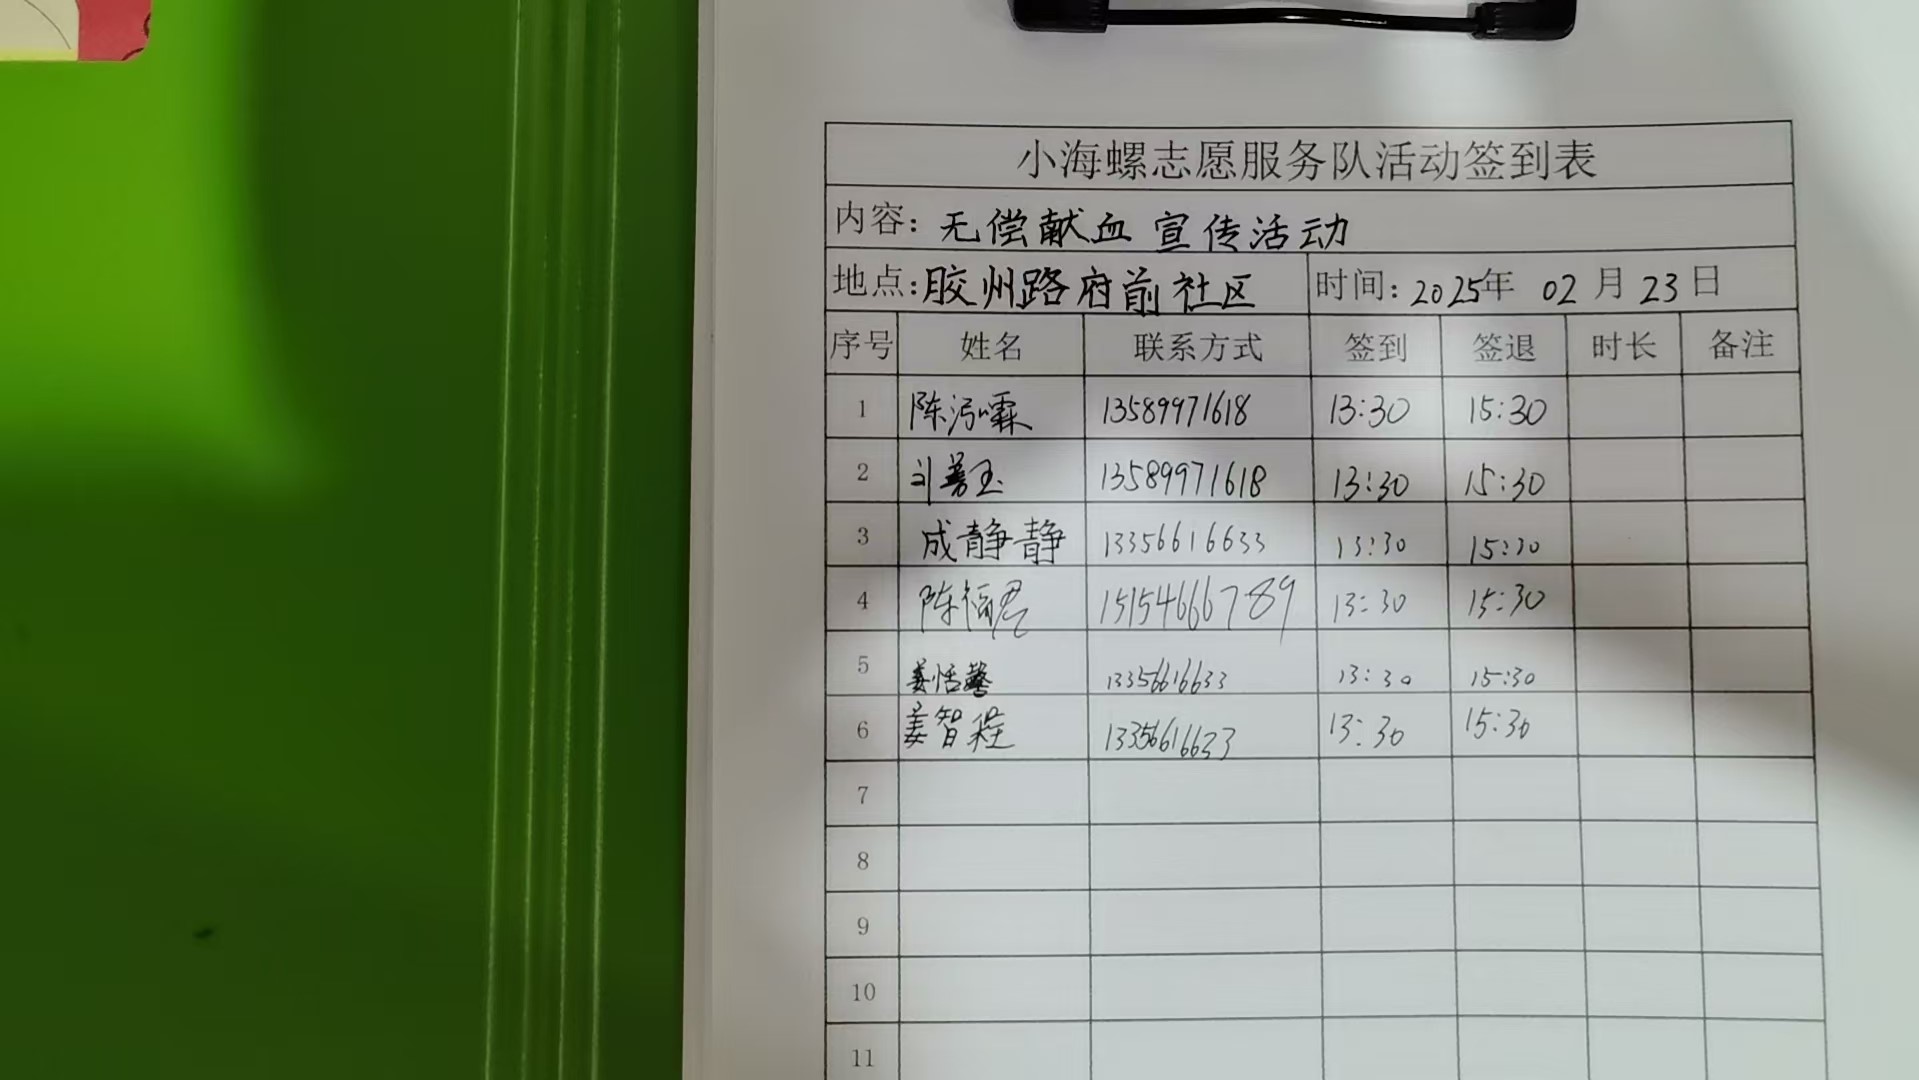 小海螺志愿服务队活动签到表
内容: 无偿献血宣传活动
地点: 胶州路府前社区 时间: 2025年 02月23日
序号 姓名 联系方式 签到 签退 时长 备注
1 陈 霖 13589971618 13:30 15:30
2 刘善玉 13589971618 13:30 15:30
3 成静静 13356616633 13:30 15:30
4 陈福君 15154666789 13:30 15:30
5 姜恬馨 13356616633 13:30 15:30
6 姜智程 13356616633 13:30 15:30
7
8
9
10
11